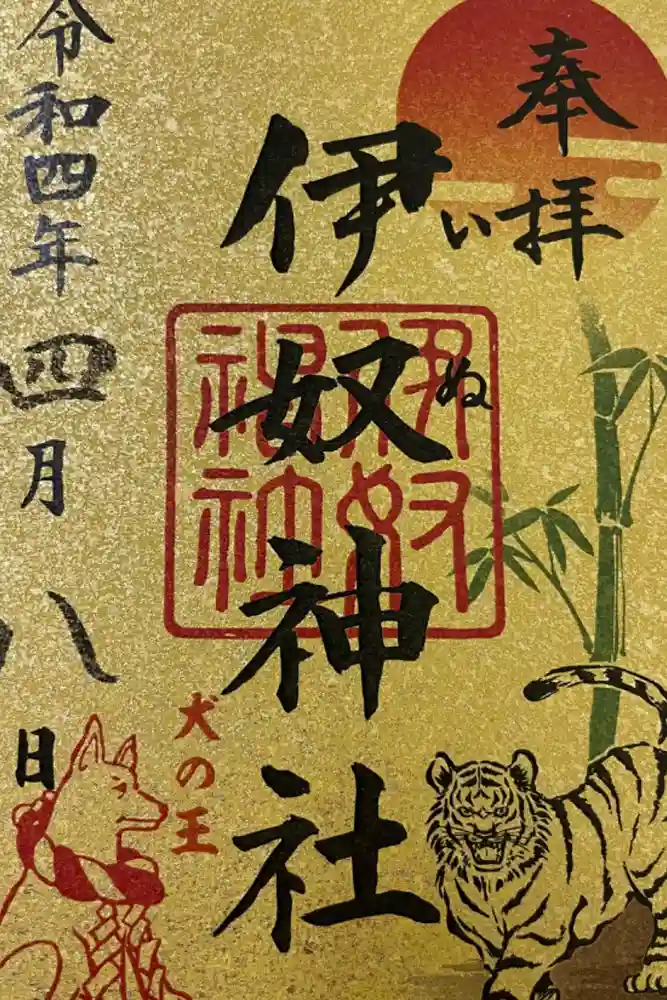 奉拝
伊奴神社
いぬ
伊奴
神社
犬の王
令和四年四月八日